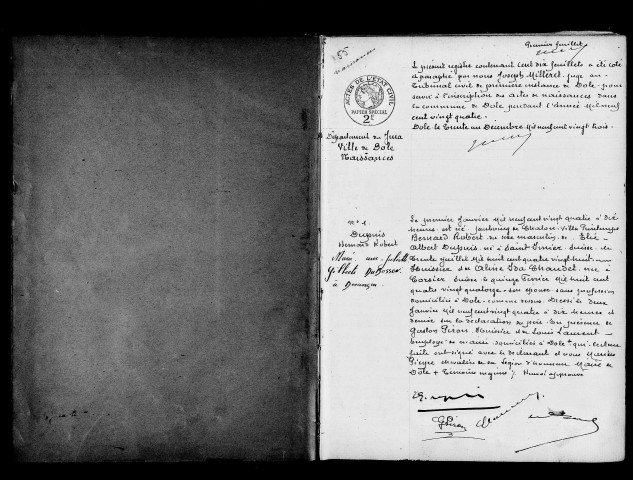 Premier feuillet
55
Le présent registre contenant cent dix feuillets a été coté
et paraphé par nous Joseph Milleret, juge au
Tribunal civil de première instance de Dole, pour
servir à l'inscription des actes de naissances dans
la commune de Dole pendant l'année mil neuf
cent vingt quatre.
Dole le trente un Décembre mil neuf cent vingt trois.
ACTES DE L'ETAT CIVIL
PAPIER SPECIAL
2F
Département du Jura
Ville de Dôle
Naissances
N° 1
Dupuis
Bernard Robert
Marié avec
à Besançon
Le premier Janvier mil neuf cent vingt quatre à dix
heures est né faubourg de Chalon, Villa Printemps
Bernard Robert, du sexe masculin, de Elie
Albert Dupuis, né à Saint Imier, Suisse, le
trente juillet mil huit cent quatre vingt huit
et de Aline Ida Chaudet, née à
Corsier Suisse le quinze Février mil huit cent
quatre vingt quatorze, son épouse sans profession
domiciliés à Dole comme dessus. Dressé le deux
Janvier mil neuf cent vingt quatre à dix heures et
demie sur la déclaration du père. En présence de
Gaston Piron et de Louis Laurent
employé de mairie domiciliés à Dole qui, lecture
faite ont signé avec le déclarant et nous
Pieyre chevalier de la Légion d'honneur Maire de
Dole + témoins majeurs